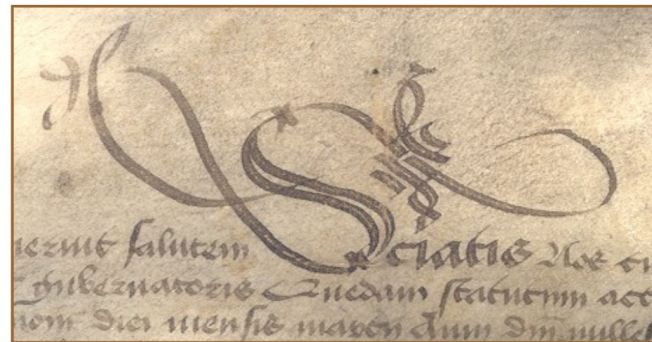 uerint salutem Sciatis Nos cu
gubernatoris Quedam statutum acc
nom diei mensis marcii Anno dni mille